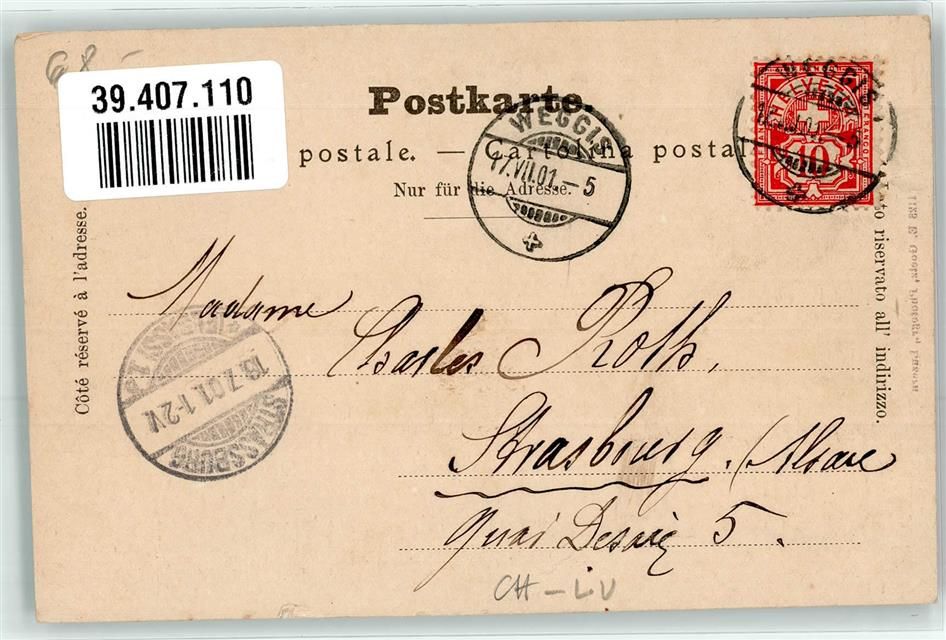 68 -
39.407.110
Postkarte.
postale. — Cartolina postal
Nur für die Adresse.
WEGGIS
17.VII.01.—5
WEGGIS
HELVETIA
10
Côté réservé à l'adresse.
ato riservato all' indirizzo.
Madame
Charles Roth,
Strasbourg. (Alsace
Quai Desaix 5.
STRASSBURG
18.7.01.1-2V.
CH - LU